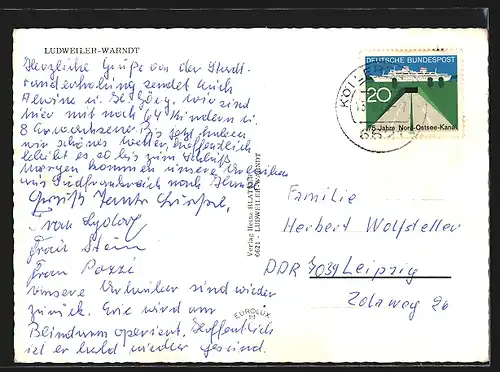 LUDWEILER-WARNDT
Herzliche Grüße von der Stadt-
randerholung sendet Euch
wir sind
hier mit noch 64 Kindern u.
8 Erwachsenen. Bis jetzt haben
wir schönes Wetter, hoffentlich
bleibt es so bis zum Schluß
Morgen kommen unsere Urlauber
aus Südfrankreich nach Hause
Frau
Frau Stein
Frau Pazzi
Unsere Urlauber sind wieder
zurück. wird am
Blinddarm operiert. Hoffentlich
ist er bald wieder gesund.
Verlag Heinz
6621 - LUDWEILER-WARNDT
EUROLUX
DEUTSCHE BUNDESPOST
20
75 Jahre Nord-Ostsee-Kanal
Familie
Herbert Wolfsteller
DDR 7039 Leipzig
Zolaweg 26